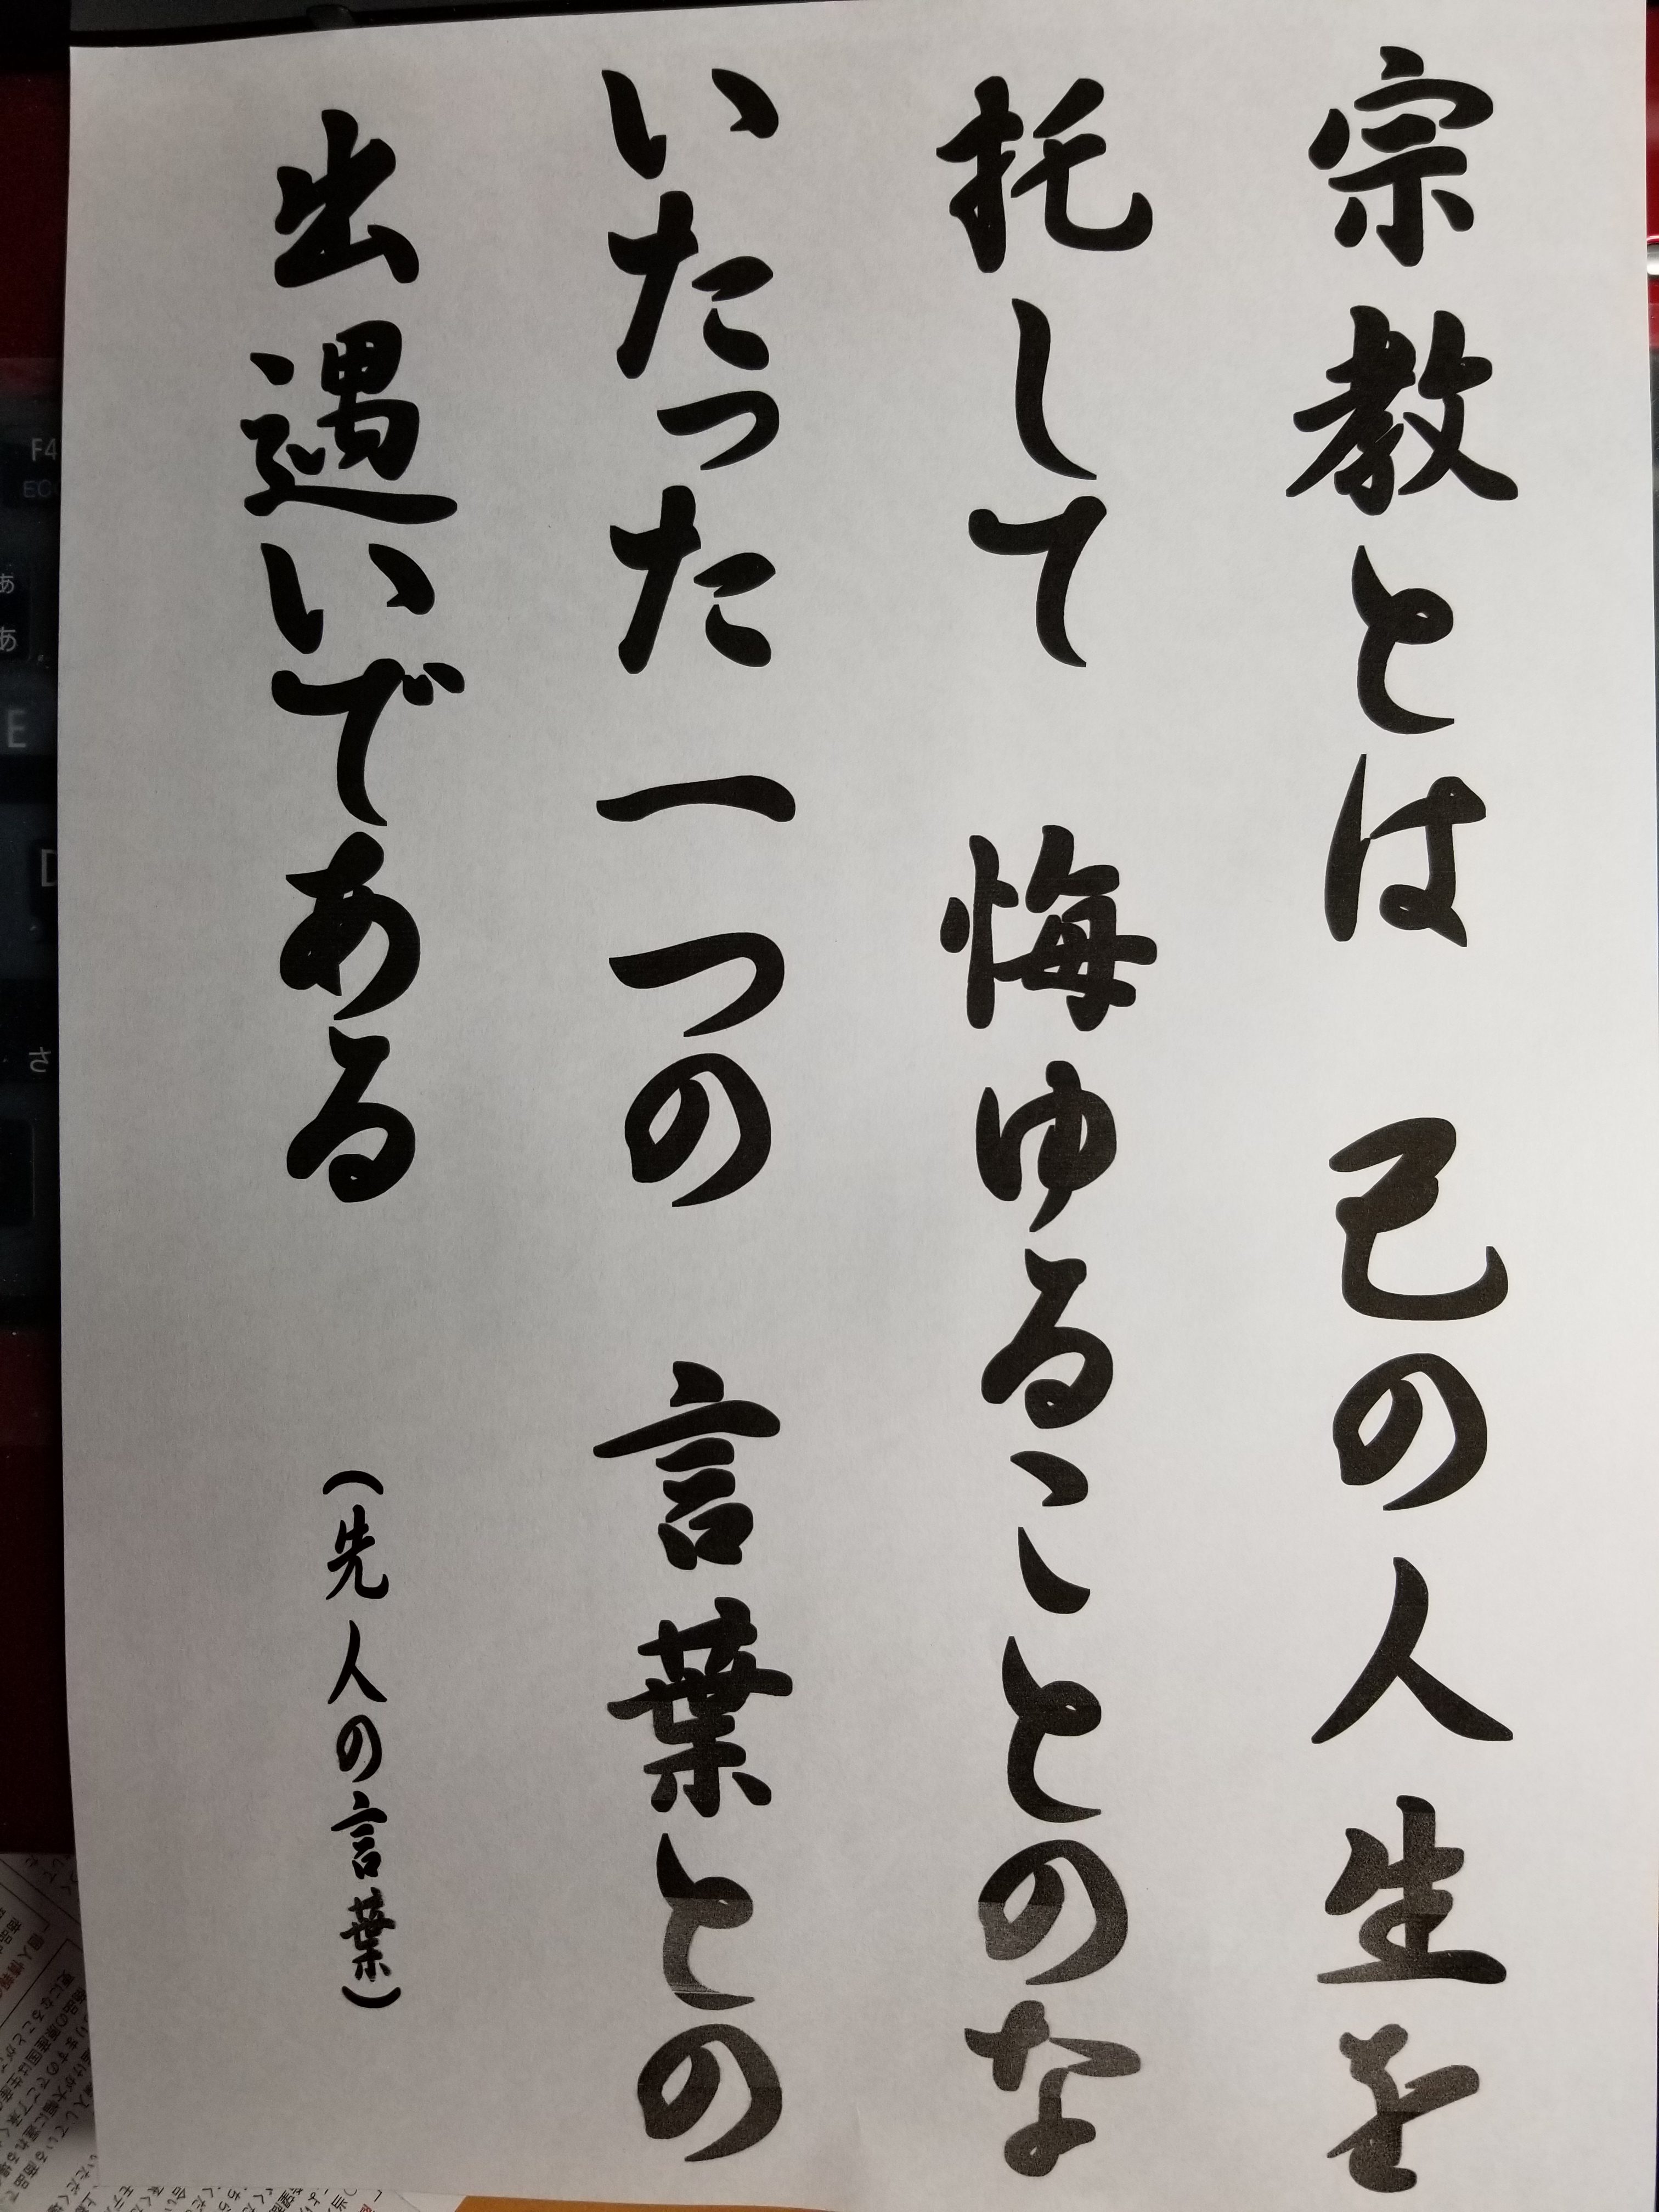 宗教とは 己の人生を
托して 悔ゆることのな
いたった一つの 言葉との
出遇いである （先人の言葉）
F4
E
あ
あ
さ